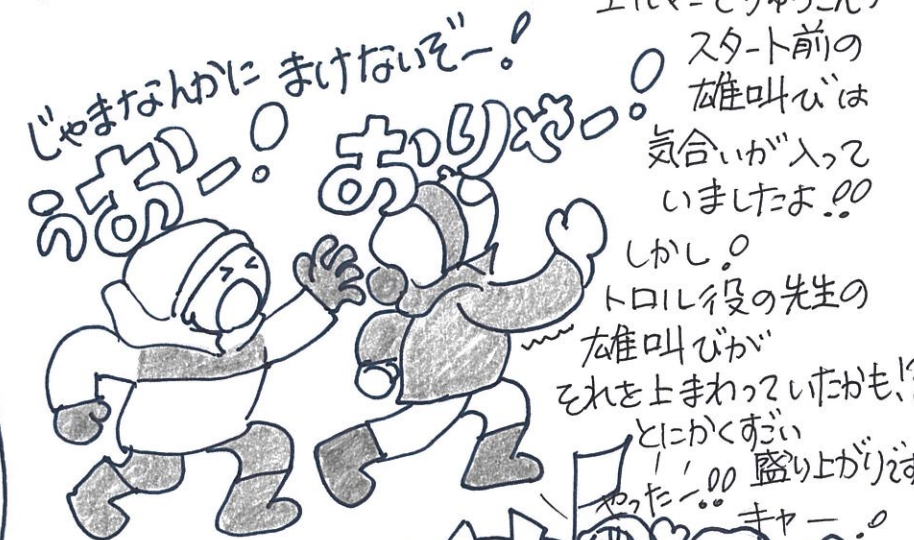 じゃまなんかに まけないぞー!
うおー!
おりゃー!
スタート前の
雄叫びは
気合いが入って
いましたよ!!
しかし!
トロル役の先生の
雄叫びが
それを上まわっていたかも!?
とにかくすごい
盛り上がりです
やったー!!
キャー!